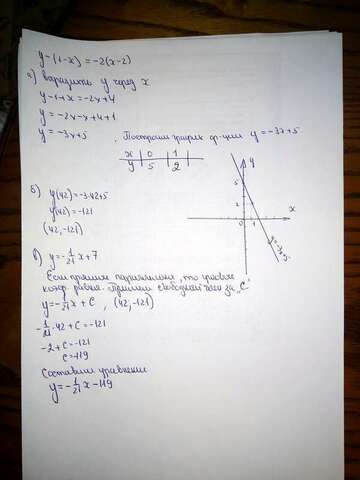 y-(1-x)=-2(x-2)
а) выразить y через x
y-1+x=-2x+4
y=-2x-x+4+1
y=-3x+5, Построим график ф-ции y=-3x+5
x 0 1
y 5 2
y
5
2
0 1
x
y=-3x+5
б) y(42)=-3·42+5
y(42)=-121
(42,-121)
в) y=-1/21x+7
Если прямые параллельны, то угловые
коэф. равны. Примем свободный член за "C"
y=-1/21x+C, (42,-121)
-1/21·42+C=-121
-2+C=-121
C=-119
Составим уравнение
y=-1/21x-119